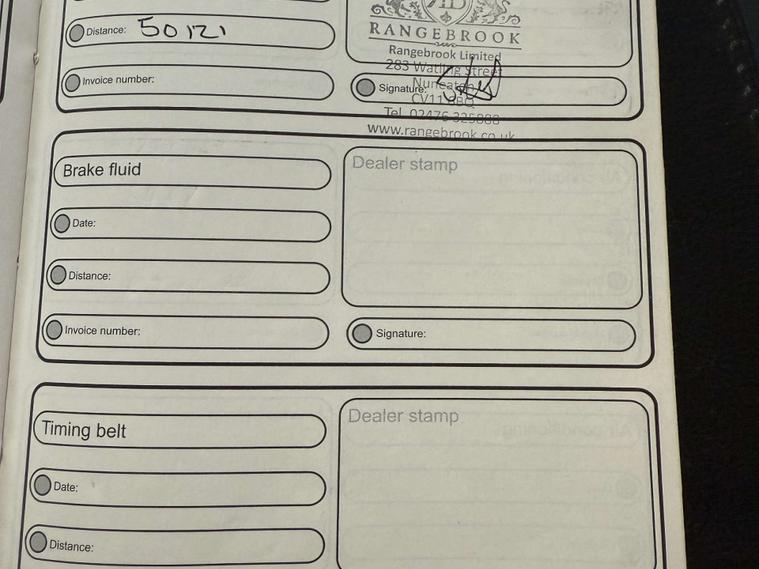 RANGEBROOK
Distance: 50121
Rangebrook Limited
283 Watling Street
Invoice number:
Nuneaton
Signature:
CV11 6BQ
Tel. 02476 325888
www.rangebrook.co.uk
Brake fluid
Dealer stamp
Date:
Distance:
Invoice number:
Signature:
Timing belt
Dealer stamp
Date:
Distance: